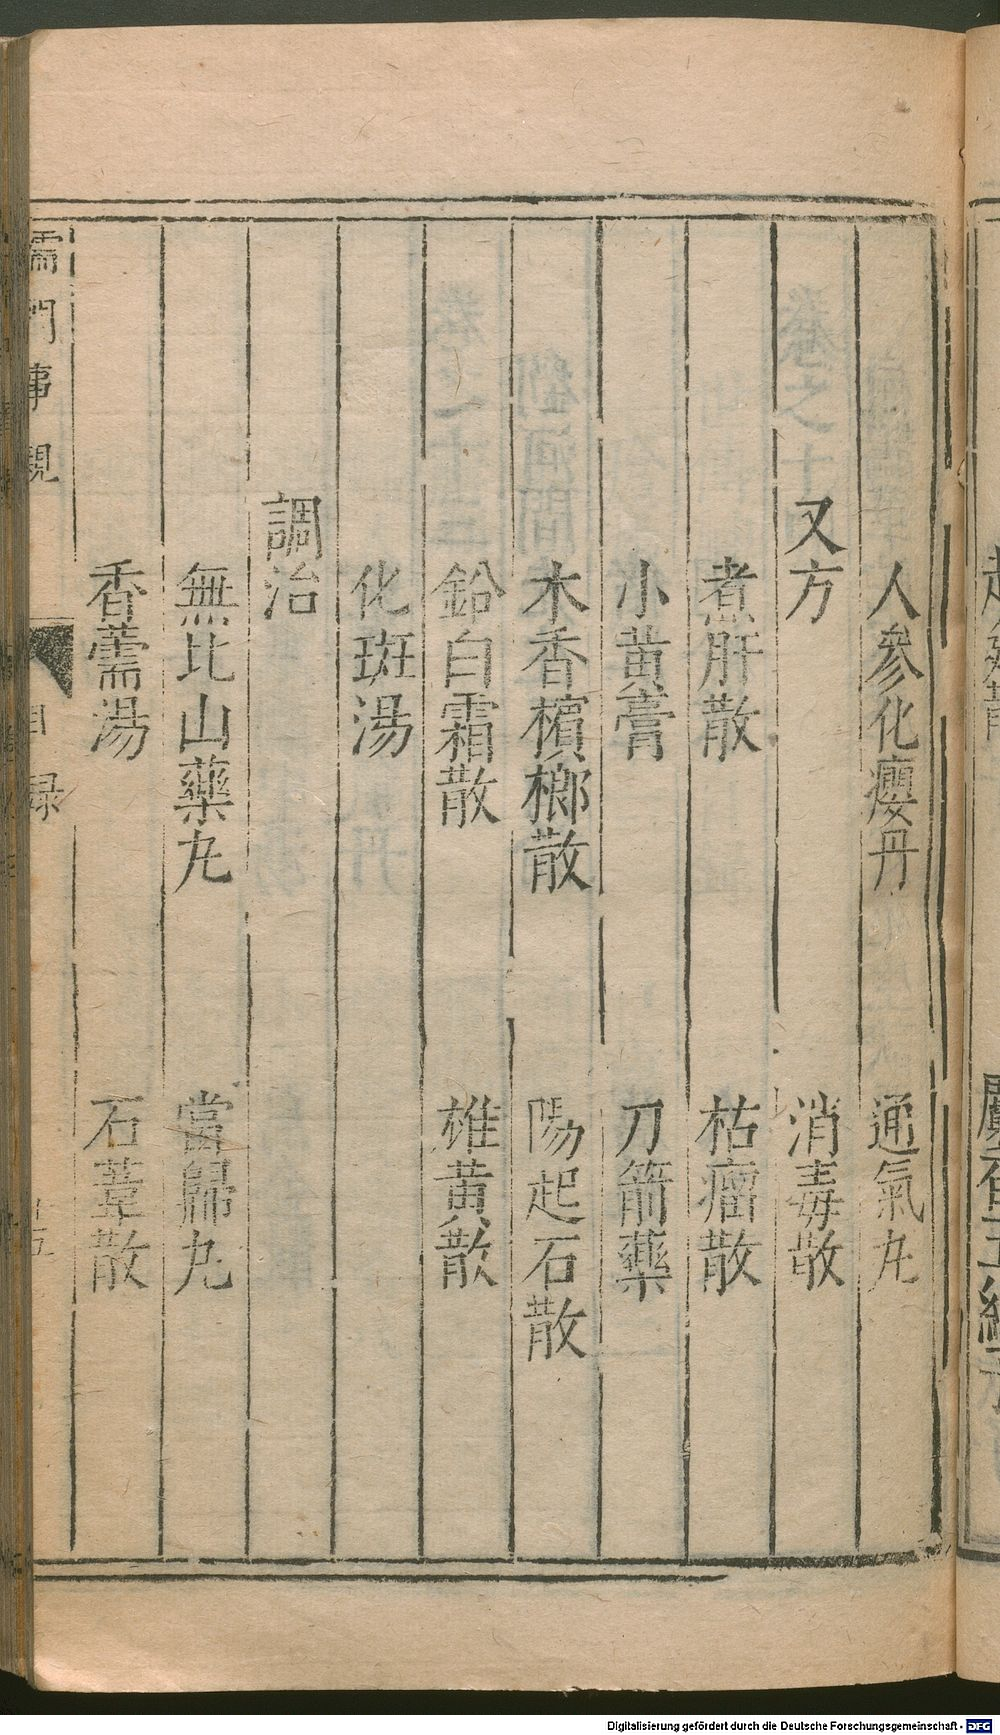 人參化癭丹　通氣丸
又方　消毒散
煮肝散　枯瘤散
小黄膏　刀箭藥
木香檳榔散　陽起石散
鉛白霜散　雄黄散
化斑湯
調治
無比山藥丸　當歸丸
香薷湯　石葦散
儒門事親　目録　十五
Digitalisierung gefördert durch die Deutsche Forschungsgemeinschaft - DFG